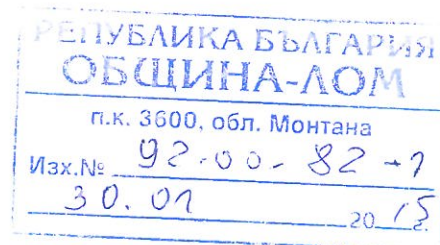 РЕПУБЛИКА БЪЛГАРИЯ
ОБЩИНА-ЛОМ
п.к. 3600, обл. Монтана
Изх.№ 92-00-82-1
30.01 2015 г.